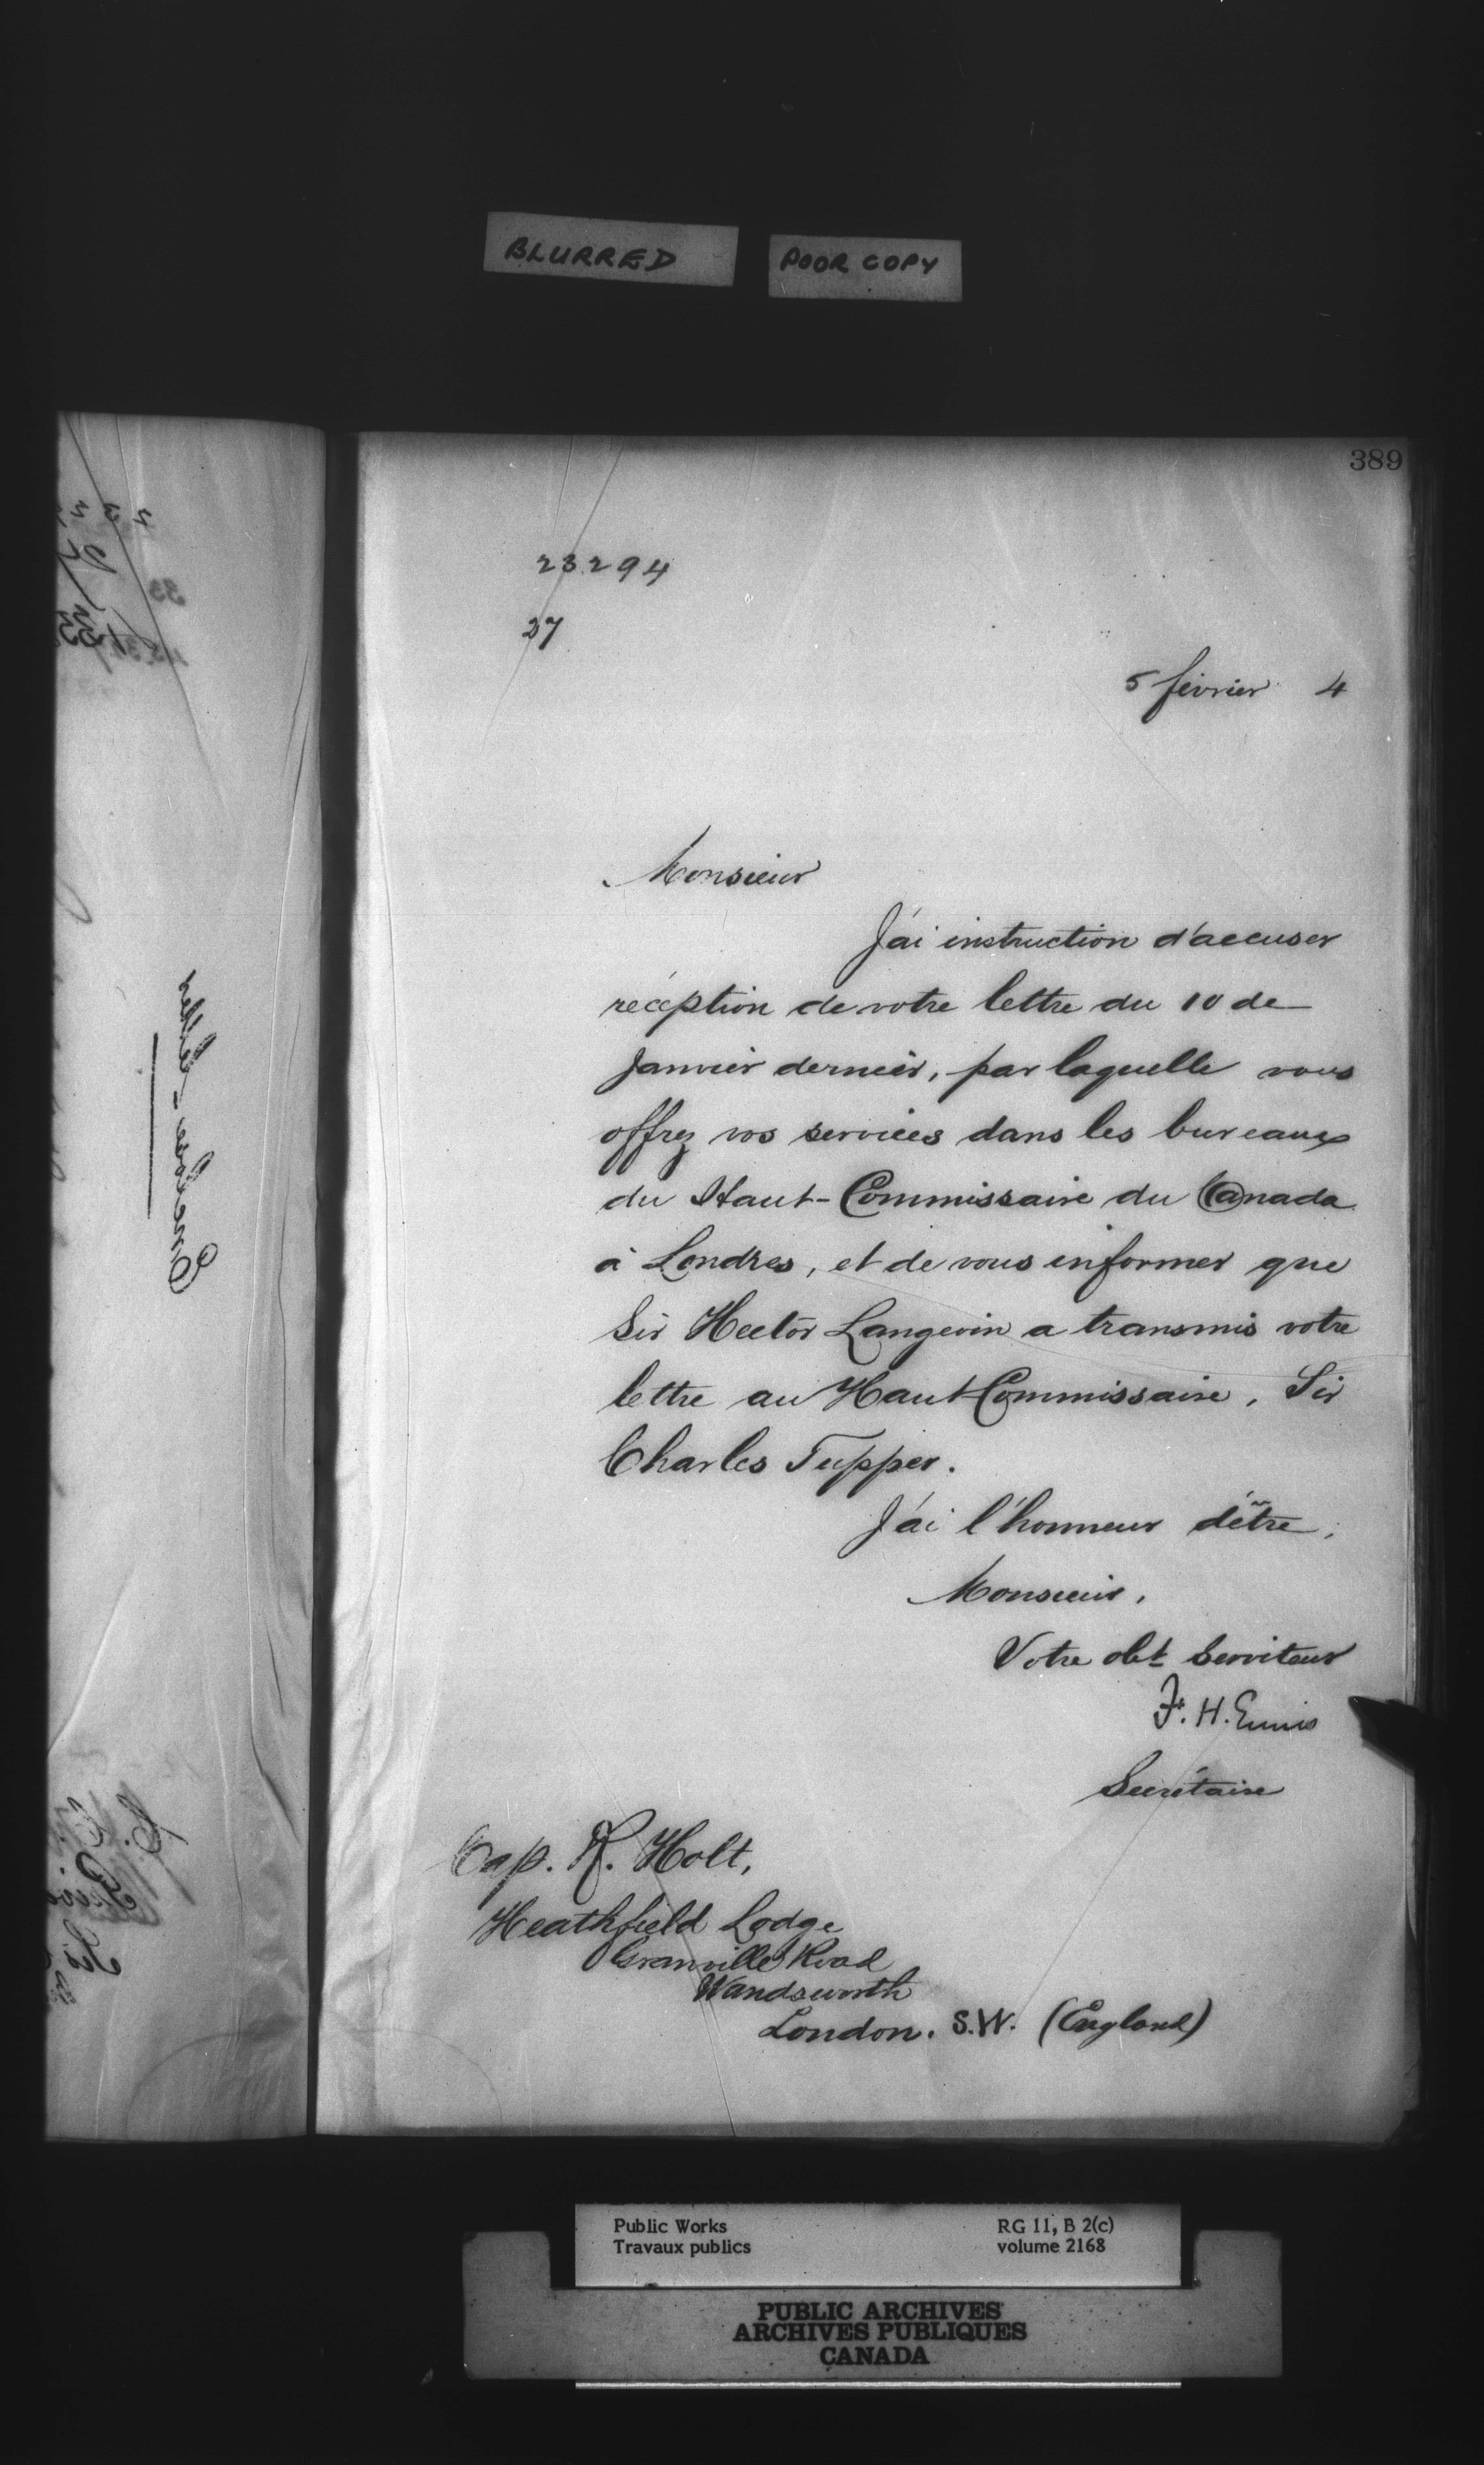 BLURRED
POOR COPY
389
23294
27
5 février 4
Monsieur
J'ai instruction d'accuser
réception de votre lettre du 10 de
Janvier dernier, par laquelle vous
offrez vos services dans les bureaux
du Haut-Commissaire du Canada
à Londres, et de vous informer que
Sir Hector Langevin a transmis votre
lettre au Haut-Commissaire, Sir
Charles Tupper.
J'ai l'honneur d'être,
Monsieur,
Votre obt Serviteur
F. H. Ennis
Secrétaire
Cap. R. Holt,
Heathfield Lodge
Granville Road
Wandsworth
London. S.W. (England)
Public Works
Travaux publics
RG 11, B 2(c)
volume 2168
PUBLIC ARCHIVES
ARCHIVES PUBLIQUES
CANADA